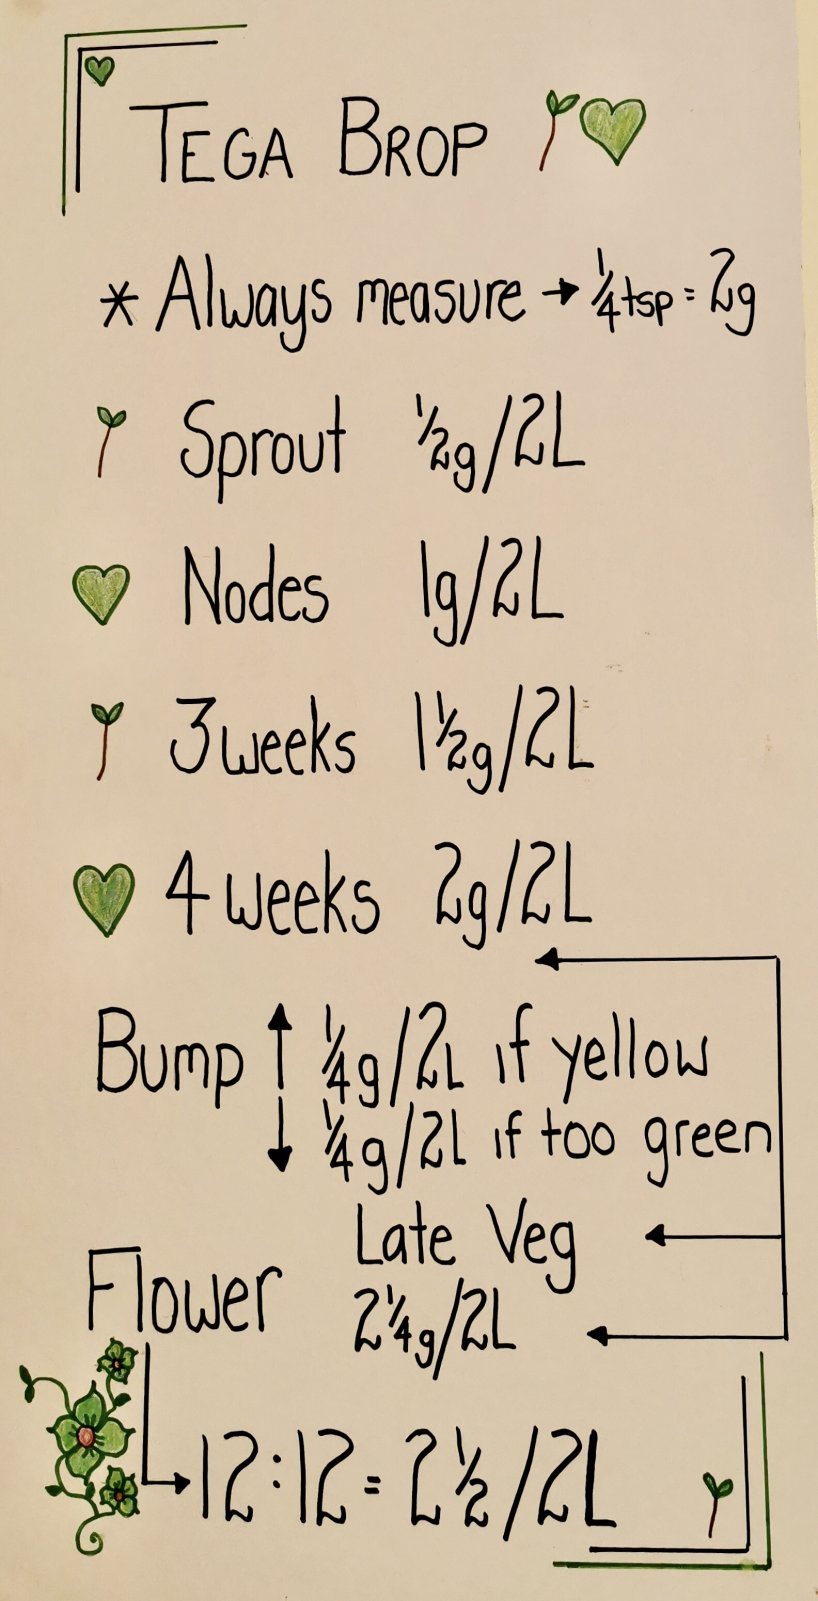 TEGA BROP
* Always measure → 1/4 tsp = 2g
Sprout 1/2g/2L
Nodes 1g/2L
3 weeks 1 1/2g/2L
4 weeks 2g/2L
Bump ↑ 1/4g/2L if yellow
↓ 1/4g/2L if too green
Late Veg
Flower 2 1/4g/2L
12:12 = 2 1/2/2L